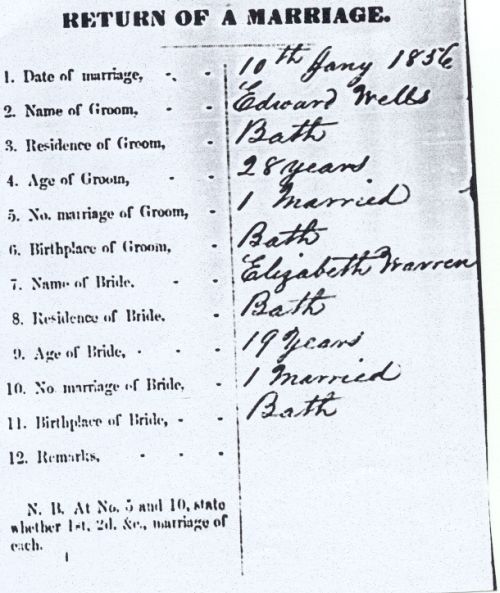 RETURN OF A MARRIAGE.
1. Date of marriage, - - 10th Jany 1856
2. Name of Groom, - - Edward Wells
3. Residence of Groom, - Bath
4. Age of Groom, - - 28 years
5. No. marriage of Groom, - 1 Married
6. Birthplace of Groom, - Bath
7. Name of Bride. - - Elizabeth Warren
8. Residence of Bride, - Bath
9. Age of Bride, - - - 19 Years
10. No. marriage of Bride, - 1 Married
11. Birthplace of Bride, - - Bath
12. Remarks, - - -
N. B. At No. 5 and 10, state
whether 1st, 2d. &c., marriage of
each.